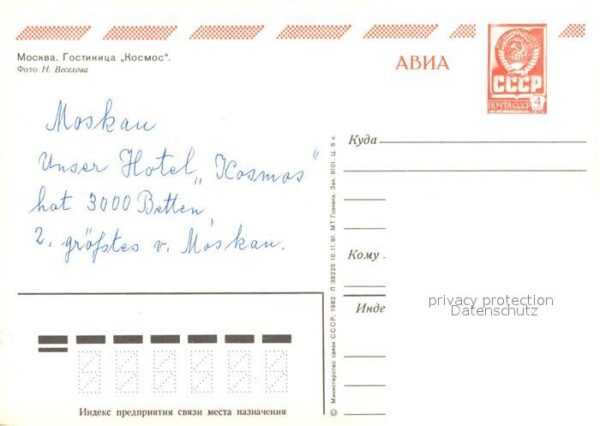 Москва. Гостиница „Космос“.
Фото Н. Веселова
АВИА
СССР
ПОЧТА СССР 4
Moskau
Unser Hotel „Kosmos“
hat 3000 Betten,
2. größtes v. Moskau.
Куда
Кому
Инде
privacy protection
Datenschutz
Индекс предприятия связи места назначения
© Министерство связи СССР, 1982 П 38225 10.11.81. МТ Гознака. Зак. 8101. Ц. 6 к.